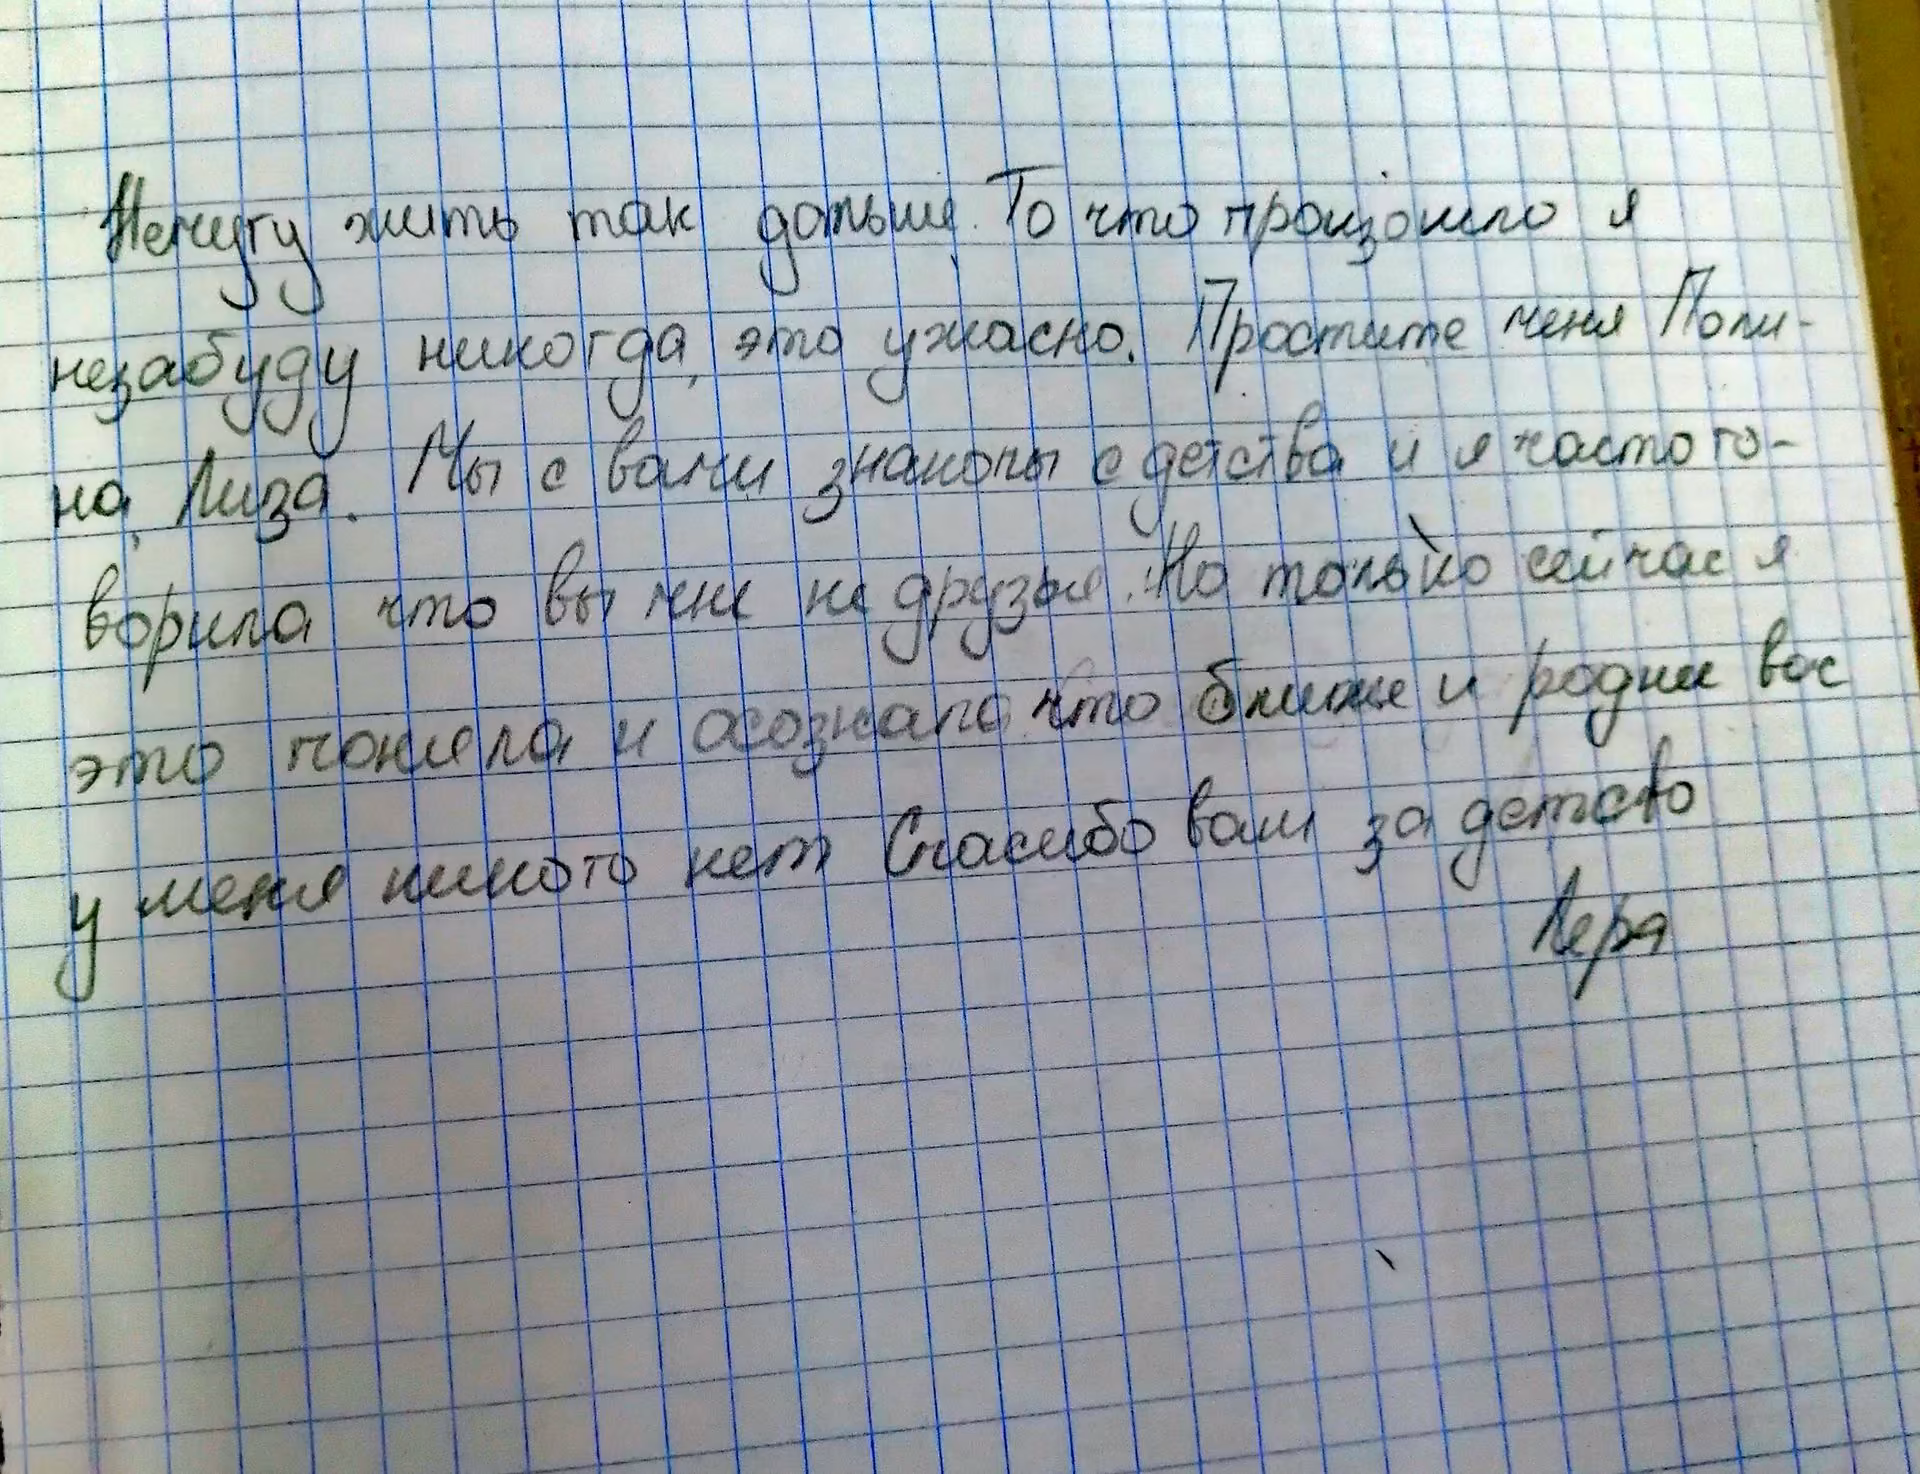 Немугу жить так дальше. То что произошло я
незабуду никогда, это ужасно. Простите меня Поли-
на, Лиза. Мы с вами знакомы с детства и я часто го-
ворила что вы мне не друзья. Но только сейчас я
это поняла и осознала что ближе и родне вас
у меня никого нет Спасибо вам за детство
Лера